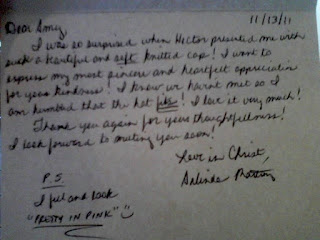 11/13/11
Dear Amy,
I was so surprised when Hector presented me with
such a beautiful and soft knitted cap! I want to
express my most sincere and heartfelt appreciation
for your kindness! I know we havnt met so I
am humbled that the hat fits! I love it very much!
Thank you again for your thoughtfulness!
I look forward to meeting you soon!
Love in Christ,
P.S
I feel and look
"PRETTY IN PINK"